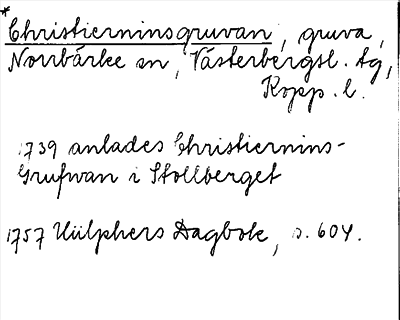 * Christierninsgruvan, gruva,
Norrbärke sn, Västerbergsl. tg,
Kopp. l.
1739 anlades Christiernins-
Grufwan i Stollberget
1757 Hülphers Dagbok, s. 604.